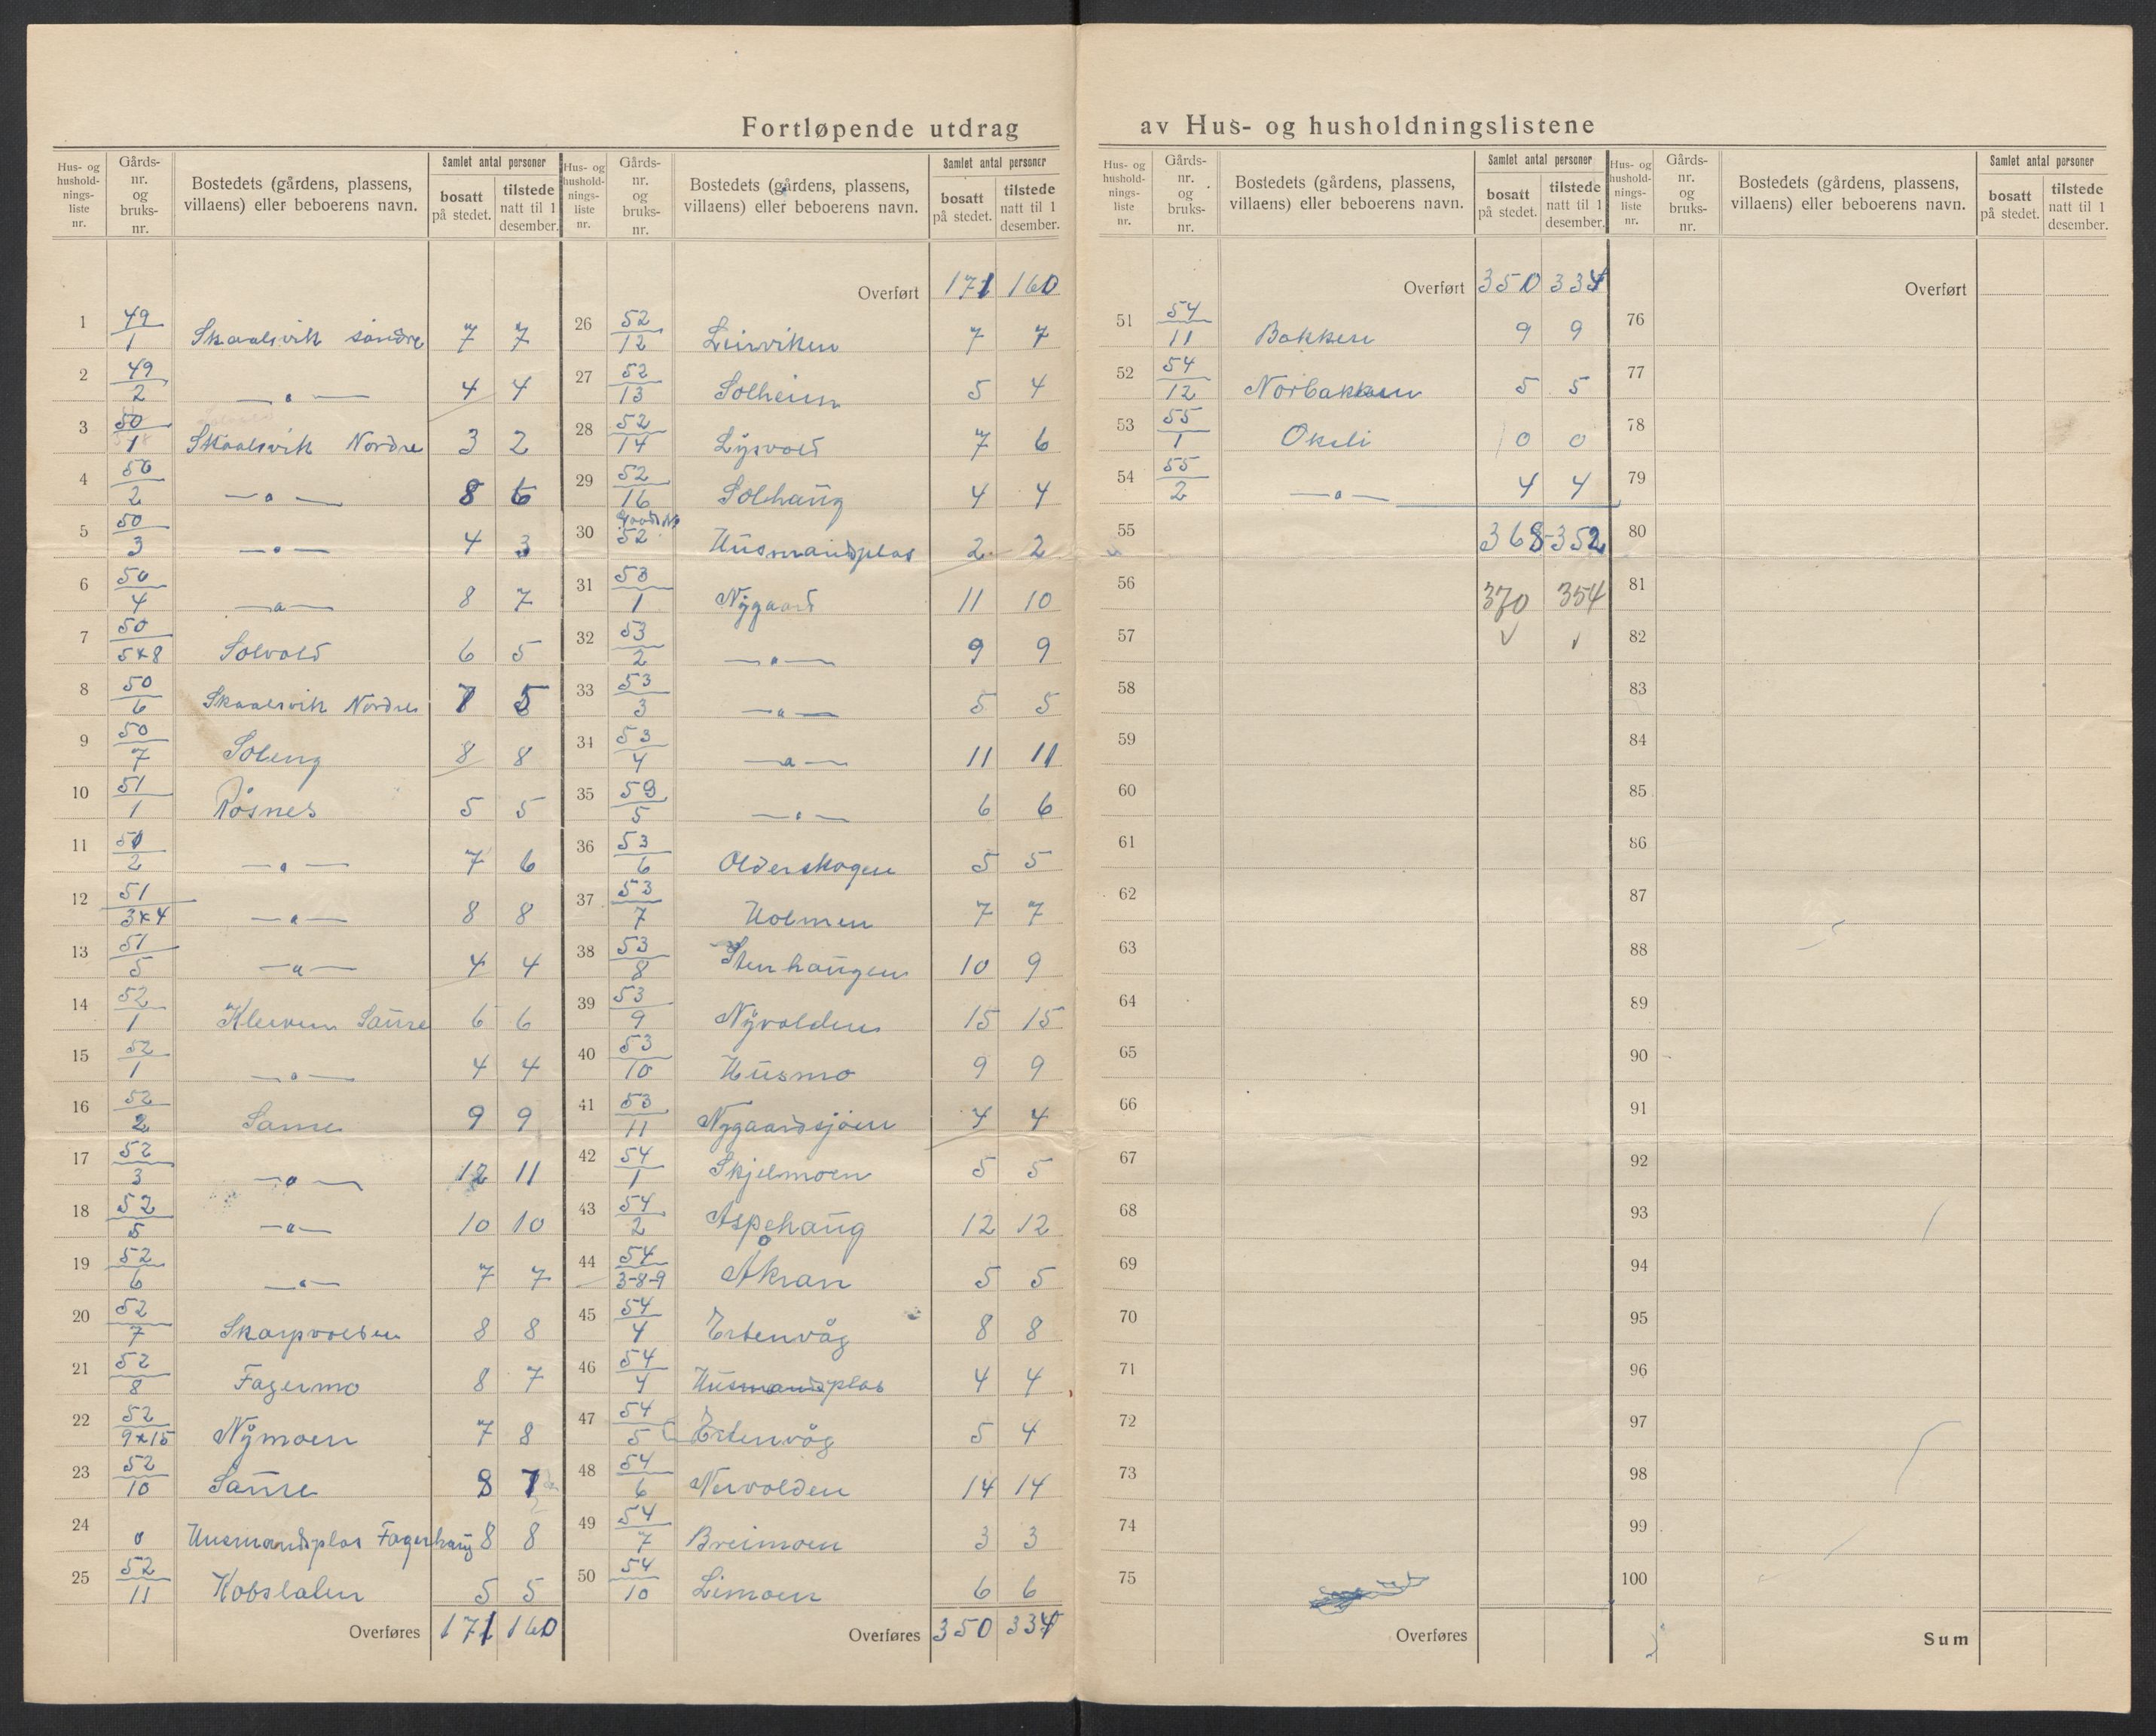 Fortløpende utdrag av Hus- og husholdningslistene
Hus- og husholdnings- liste nr. | Gårds- nr. og bruks- nr. | Bostedets (gårdens, plassens, villaens) eller beboerens navn. | Samlet antal personer | bosatt på stedet. | tilstede natt til 1 desember.
1 49/1 Skaalsvik søndre 7 7
2 49/2 —"— 4 4
3 50/1 Skaalsvik Nordre 3 2
4 50/2 —"— 8 6
5 50/3 —"— 4 3
6 50/4 —"— 8 7
7 50/5x8 Solvold 6 5
8 50/6 Skaalsvik Nordre 7 5
9 50/7 Soleng 8 8
10 51/1 Røsnes 5 5
11 50/2 —"— 7 6
12 51/3x4 —"— 8 8
13 51/5 —"— 4 4
14 52/1 Kleiven Saure 6 6
15 52/1 —"— 4 4
16 52/2 Saure 9 9
17 52/3 —"— 12 11
18 52/5 —"— 10 10
19 52/6 —"— 7 7
20 52/7 Skarpvolden 8 8
21 52/8 Fagermo 8 7
22 52/9x15 Nymoen 7 8
23 52/10 Saure 8 7
24 0 Husmandsplas Fagerhaug 8 8
25 52/11 5 5
Overføres 171 160
Hus- og husholdnings- liste nr. | Gårds- nr. og bruks- nr. | Bostedets (gårdens, plassens, villaens) eller beboerens navn. | Samlet antal personer | bosatt på stedet. | tilstede natt til 1 desember.
Overført 171 160
26 52/12 Leirviken 7 7
27 52/13 Solheim 5 4
28 52/14 Lysvold 7 6
29 52/16 Solhaug 4 4
30 Gaards No 52 Husmandsplas 2 2
31 53/1 Nygaard 11 10
32 53/2 —"— 9 9
33 53/3 —"— 5 5
34 53/4 —"— 11 11
35 53/5 —"— 6 6
36 53/6 Olderskogen 5 5
37 53/7 Holmen 7 7
38 53/8 Stenhaugen 10 9
39 53/9 Nyvolden 15 15
40 53/10 Husmo 9 9
41 53/11 Nygaardsjøen 4 4
42 54/1 Skjelmoen 5 5
43 54/2 Aspehaug 12 12
44 54/3-8-9 Åkran 5 5
45 54/4 Ertenvåg 8 8
46 54/4 Husmandsplas 4 4
47 54/5 Ertenvåg 5 4
48 54/6 Nervolden 14 14
49 54/7 Breimoen 3 3
50 54/10 Limoen 6 6
Overføres 350 334
Hus- og husholdnings- liste nr. | Gårds- nr. og bruks- nr. | Bostedets (gårdens, plassens, villaens) eller beboerens navn. | Samlet antal personer | bosatt på stedet. | tilstede natt til 1 desember.
Overført 350 334
51 54/11 Bakken 9 9
52 54/12 Norbakken 5 5
53 55/1 Oksli 0 0
54 55/2 —"— 4 4
55 368 - 352
56 370 354
57 ✓ ✓
58
59
60
61
62
63
64
65
66
67
68
69
70
71
72
73
74
75
Overføres
Hus- og husholdnings- liste nr. | Gårds- nr. og bruks- nr. | Bostedets (gårdens, plassens, villaens) eller beboerens navn. | Samlet antal personer | bosatt på stedet. | tilstede natt til 1 desember.
Overført
76
77
78
79
80
81
82
83
84
85
86
87
88
89
90
91
92
93
94
95
96
97
98
99
100
Sum